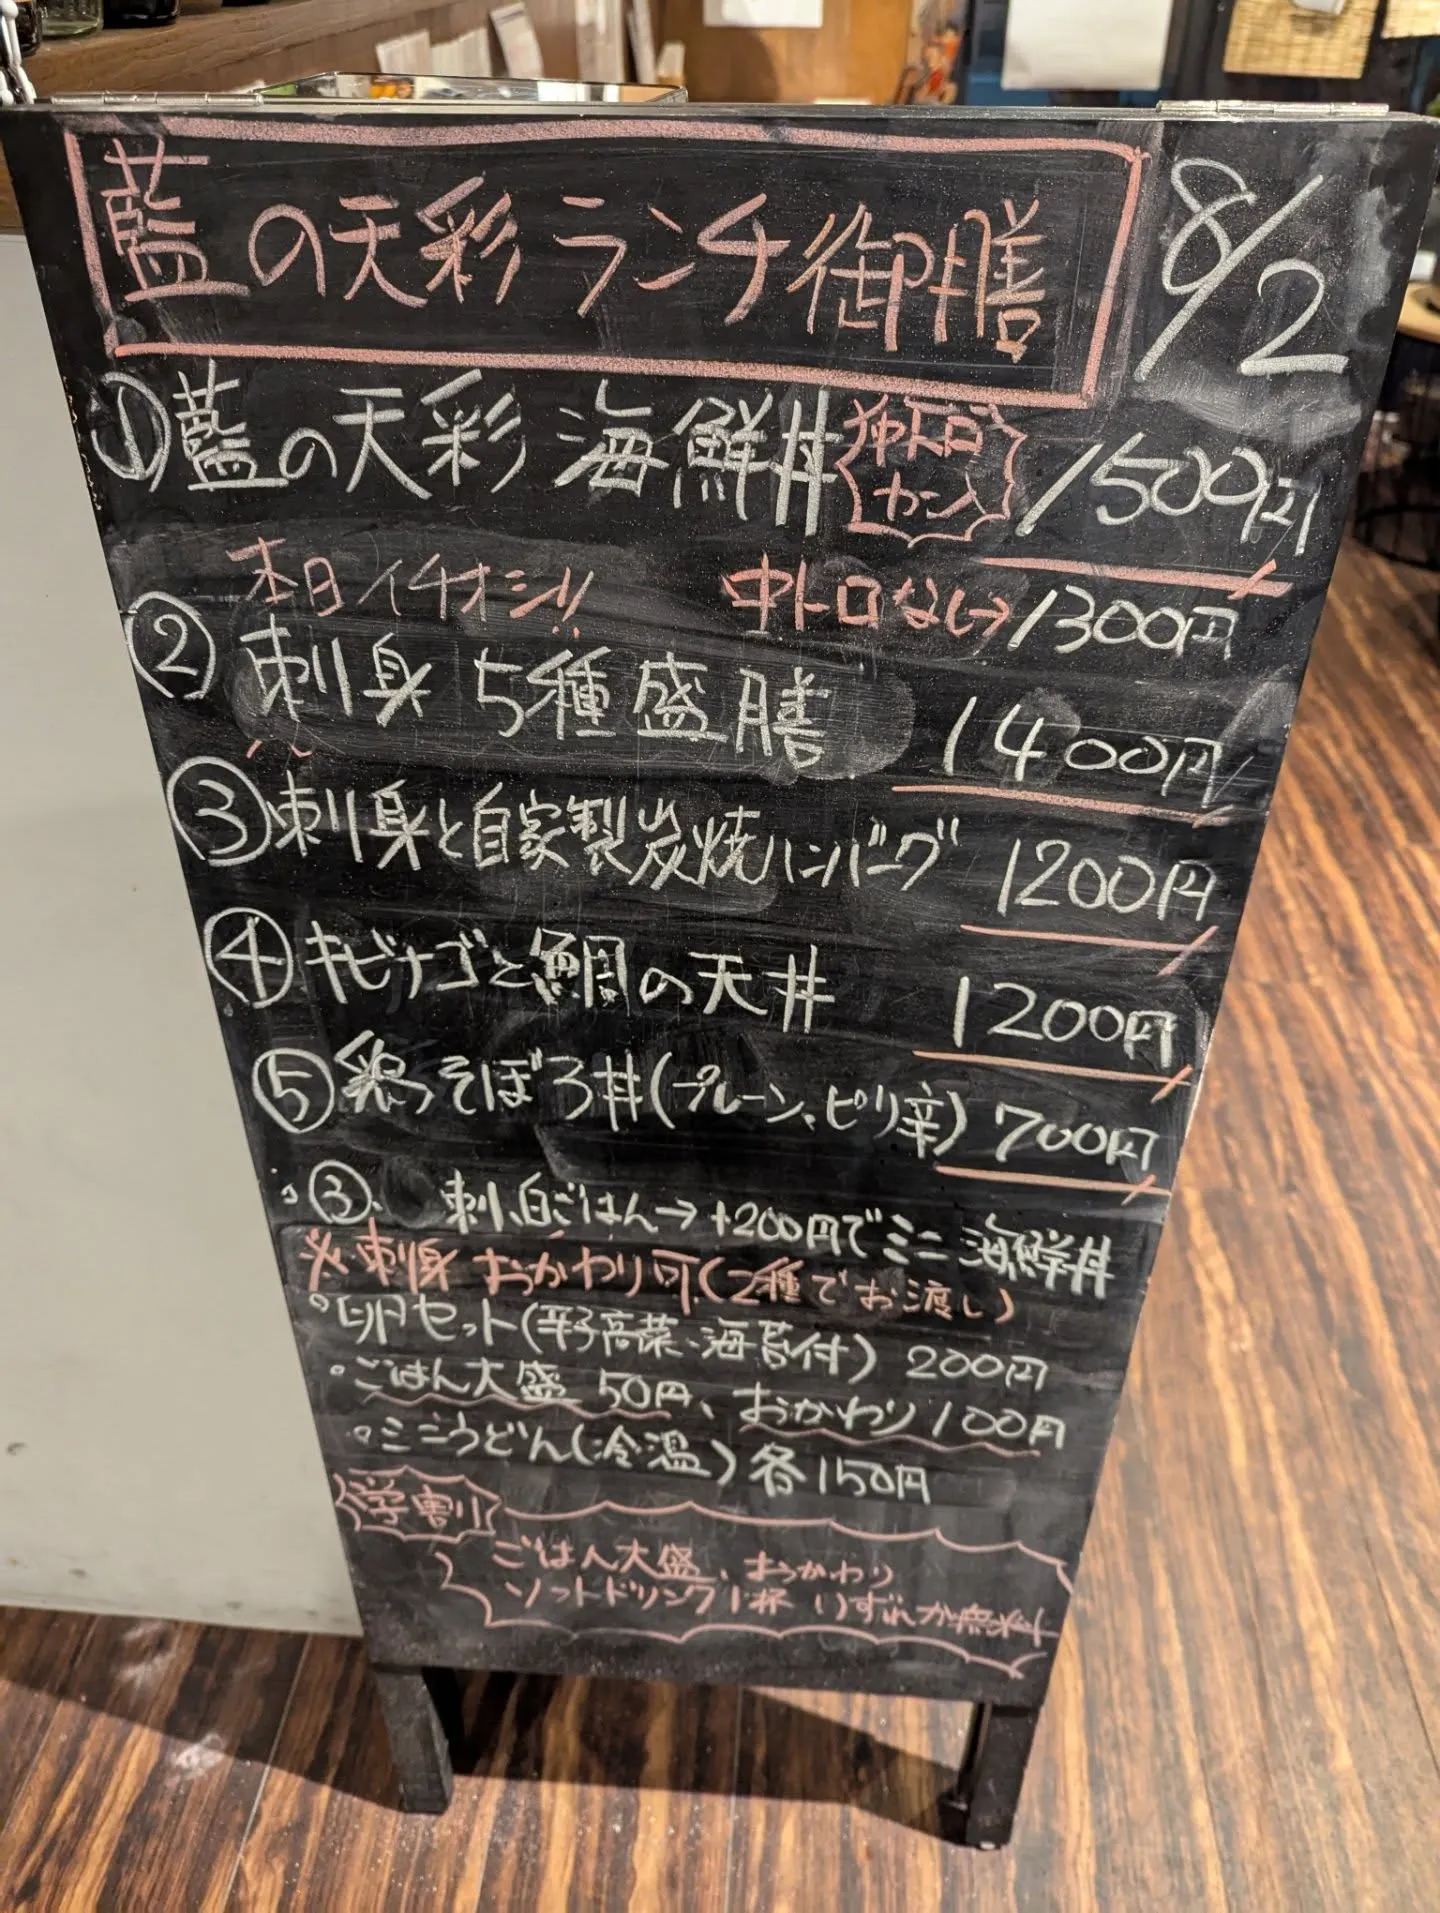 藍の天彩ランチ御膳
8/2
①藍の天彩 海鮮丼 中トロ入 1500円
本日イチオシ!! 中トロなし→1300円
②刺身 5種盛膳 1400円
③刺身と自家製炭焼ハンバーグ 1200円
④キビナゴと鯛の天丼 1200円
⑤そぼろ丼(プレーン、ピリ辛) 700円
③、 刺、白ごはん→+200円でミニ海鮮丼
※刺身 おかわり可(2種でお渡し)
卵セット(野高菜、海苔付) 200円
ごはん大盛 50円、おかわり100円
ミニうどん(冷温) 各150円
学割
ごはん大盛、おかわり
ソフトドリンク1杯 いずれか無料